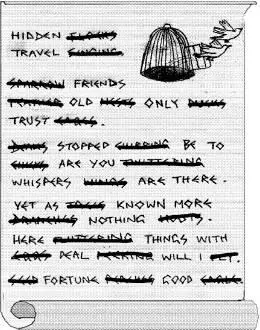 HIDDEN FLOCKS
TRAVEL SINGING.
SPARROW FRIENDS
FEATHER OLD NESTS ONLY DUCKS
TRUST EAGLES.
STOPPED CHIRPING BE TO
ARE YOU TWITTERING
WHISPERS WINGS ARE THERE.
YET AS KNOWN MORE
BRANCHES NOTHING ROOTS.
HERE FLUTTERING THINGS WITH
EGGS DEAL PECKING WILL I
FORTUNE PERCHES GOOD